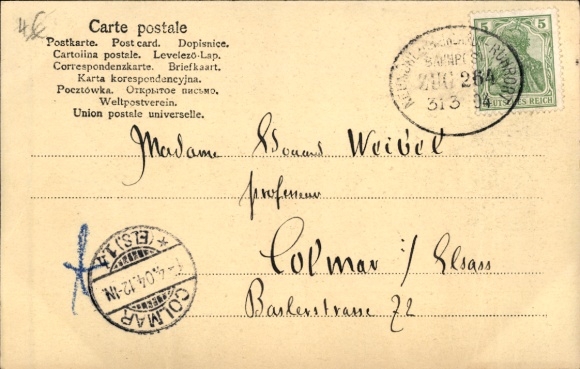 4 €
Carte postale
Postkarte. Post card. Dopisnice.
Cartolina postale. Levelező-Lap.
Correspondenzkarte. Briefkaart.
Karta korespondencyjna.
Pocztówka. Открытое письмо.
Weltpostverein.
Union postale universelle.
5 5
DEUTSCHES REICH
RUHRORT
BAHNPOST
ZUG 264
31 3 04
Madame Edouard Weibel
professeur
Colmar i/ Elsass
Baslerstrasse 72
COLMAR
* (ELS) 1.
4.04.12-1N.